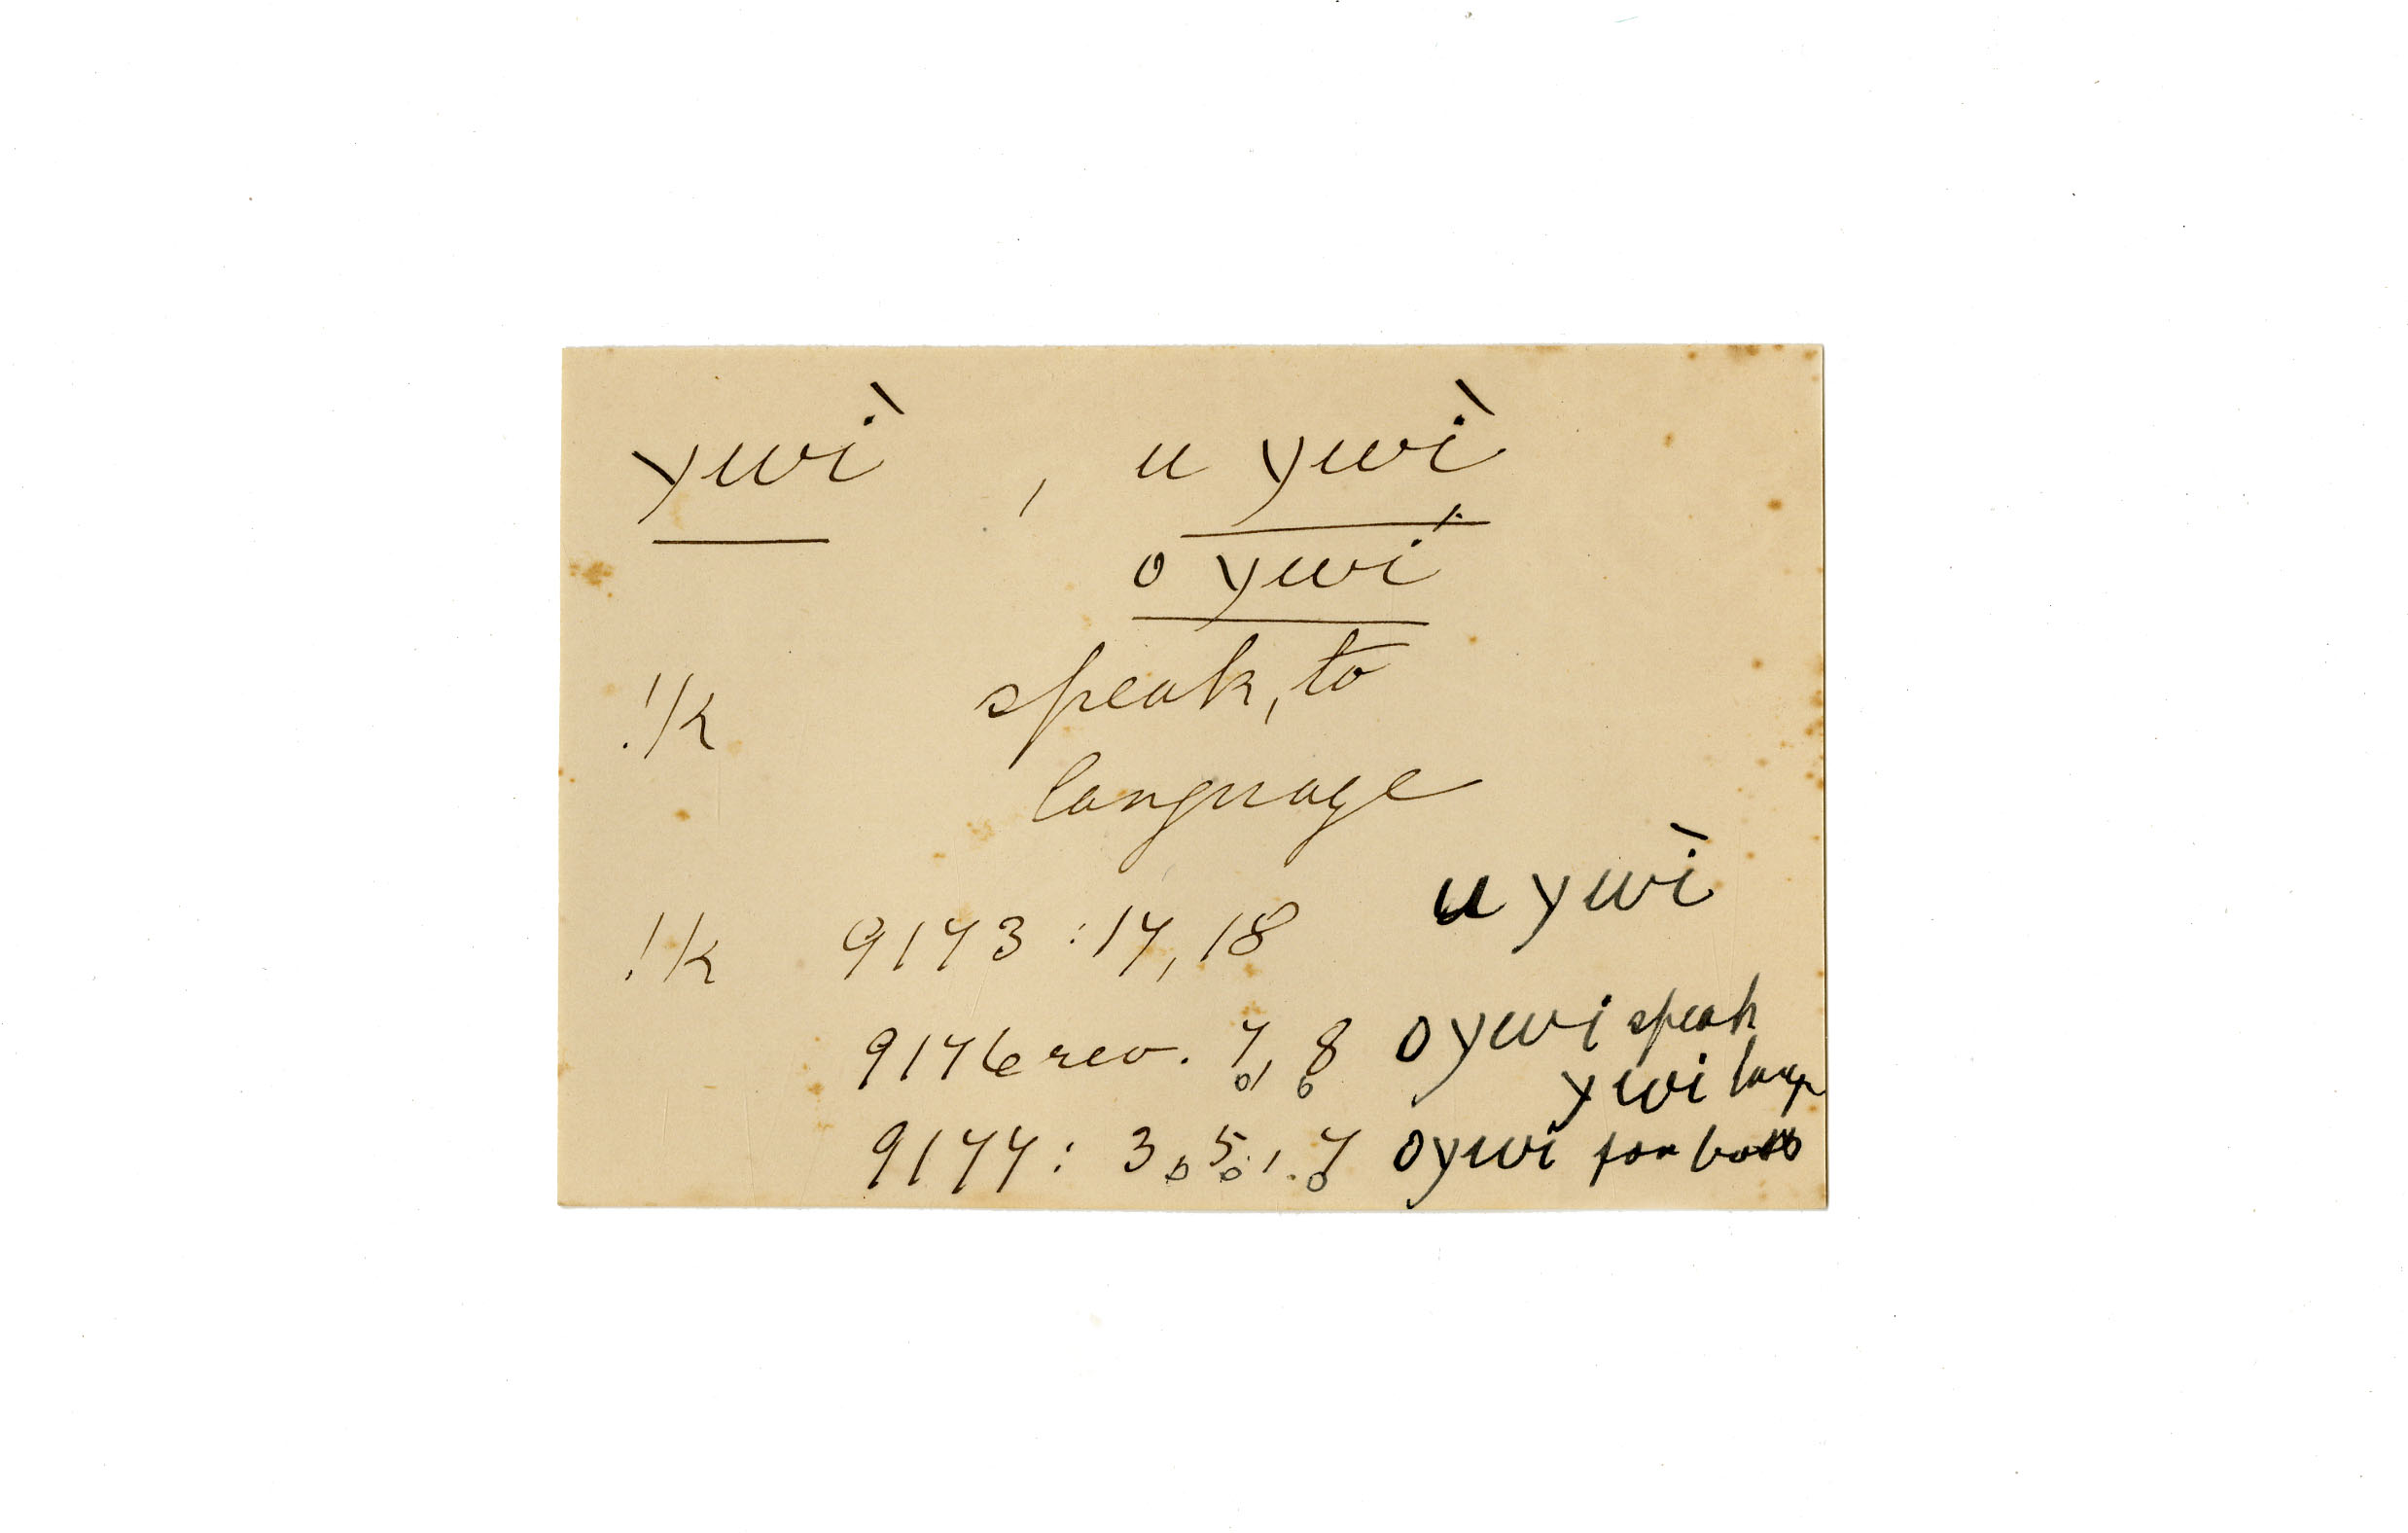 ywì , u ywì
o ywí
!k speak, to
language
!k 9173 : 17, 18 u ywì
9176 rev. 7, 8 o ywi speak
ywi lang
9177 : 3, 5, 7 oywi for both